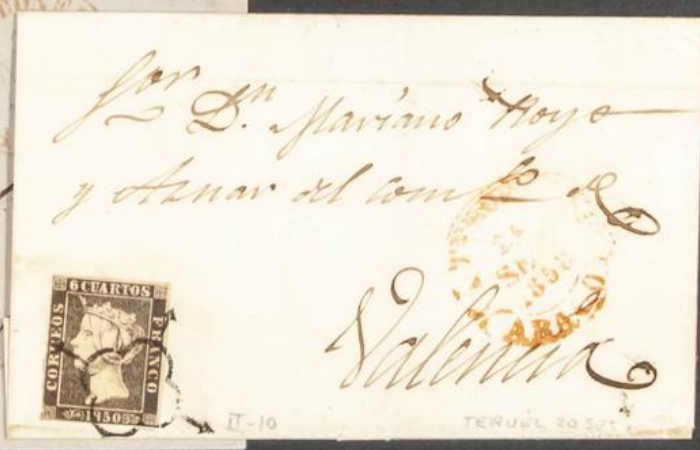 Sor
Dn Mariano Royo
y Aznar del comço de
Valencia
6 CUARTOS
CORREOS
FRANCO
1850
1850
II-10
TERUEL 20 SET